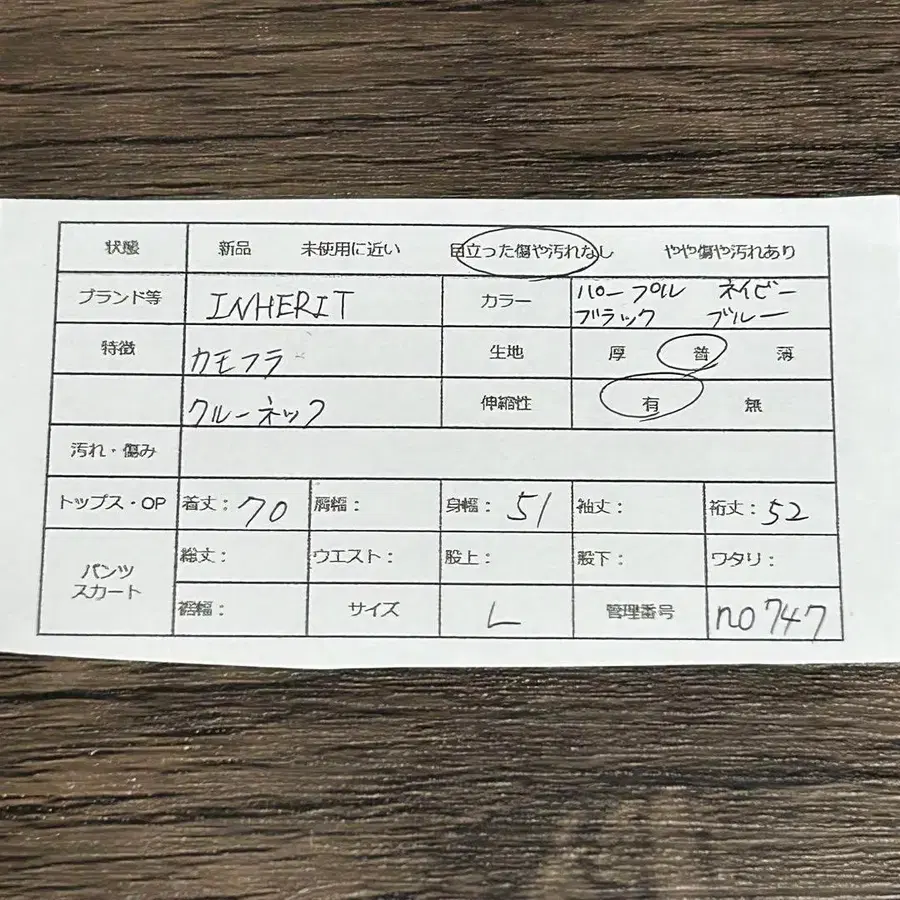 状態 新品 未使用に近い 目立った傷や汚れなし やや傷や汚れあり
ブランド等 INHERIT カラー パープル ネイビー
ブラック ブルー
特徴 カモフラ 生地 厚 普 薄
クルーネック 伸縮性 有 無
汚れ・傷み
トップス・OP 着丈: 70 肩幅: 身幅: 51 袖丈: 裄丈: 52
パンツ 総丈: ウエスト: 股上: 股下: ワタリ:
スカート 裾幅: サイズ L 管理番号 no747